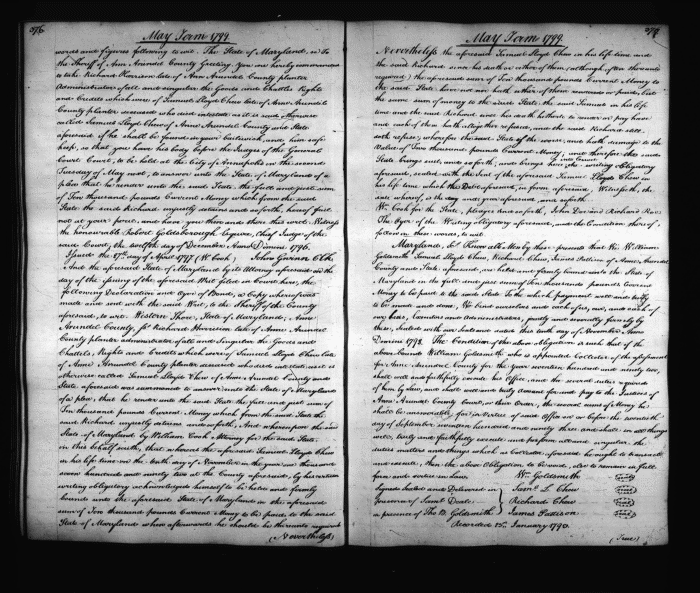 376
May Term 1799.
words and figures following to wit. The State of Maryland, sc. To
the Sheriff of Ann Arundel County Greeting, You are hereby commanded
to take Richard Harrison late of Ann Arundel County planter
Administrator of all and singular the Goods and Chattles Rights
and Credits which were of Samuel Lloyd Chew late of Ann Arundel
County planter deceased who died intestate as it is said otherwise
called Samuel Lloyd Chew of Ann Arundel County and State
aforesaid if he shall be found in your bailiwick, and him safe
keep, so that you have his body before the Judges of the General
Court, to be held at the City of Annapolis on the second
Tuesday of May next, to answer unto the State of Maryland of a
plea that he render unto the said State the full and just sum
of Ten thousand pounds Current Money which from the said
State the said Richard unjustly detains and so forth, hereof fail
not at your peril, and have you then and there this writ. Witness
the honourable Robert Goldsborough Esquire, Chief Judge of the
said Court, the twelfth day of December Anno Domini 1796.
Issued the 17th day of April 1797 (W Cook) John Gwinn Clk.
And the aforesaid State of Maryland by its Attorney aforesaid on the
day of the issuing of the aforesaid Writ filed in Court here, the
following Declaration and Oyer of Bond, a Copy whereof was
made and sent with the said Writ, to the Sheriff of the County
aforesaid, to wit. Western Shore, State of Maryland, Ann
Arundel County, sc. Richard Harrison late of Anne Arundel
County planter administrator of all and Singular the Goods and
Chattels, Rights and Credits which were of Samuel Lloyd Chew late
of Anne Arundel County planter deceased who died intestate as it is
otherwise called Samuel Lloyd Chew of Anne Arundel County and
State aforesaid was summoned to answer unto the State of Maryland
of a plea, that he render unto the said State the full and just sum of
Ten thousand pounds Current Money which from the said State the
said Richard unjustly detains and so forth, And whereupon the said
State of Maryland by William Cook Attorney for the said State
in this behalf saith, that whereas the aforesaid Samuel Lloyd Chew
in his life time on the tenth day of November in the year one thousand
seven hundred and ninety two at the County aforesaid, by his certain
writing obligatory acknowledged himself to be held and firmly
bound unto the aforesaid State of Maryland in the aforesaid
sum of Ten thousand pounds Current Money to be paid to the said
State of Maryland when afterwards he should be thereunto required
(Nevertheless)
May Term 1799.
Nevertheless the aforesaid Samuel Lloyd Chew in his life time and
the said Richard since his death or either of them (although often thereunto
required) the aforesaid sum of Ten thousand pounds Current Money to
the said State have not nor hath either of them rendered or paid, but
the same sum of money to the said State the said Samuel in his life
time and the said Richard since his death hitherto to render or pay have
and each of them hath altogether refused, and the said Richard still
doth refuse, wherefore the said State is the worse, and hath damage to the
Value of Two thousand pounds Current Money, and therefore the said
State brings suit, and so forth; and brings into Court here the writing obligatory
aforesaid, sealed with the Seal of the aforesaid Samuel Lloyd Chew in
his life time which the Debt aforesaid, in form aforesaid, Witnesseth, the
date whereof, is the day and year aforesaid, and so forth.
Wm. Cook for the State, pledges and so forth, John Doe and Richard Roe.
The Oyer of the Writing obligatory aforesaid, and the Condition thereof
follow in these words, to wit.
Maryland, sc. Know all Men by these presents that We William
Goldsmith Samuel Lloyd Chew, Richard Chew, James Pattison of Anne Arundel
County and State aforesaid, are held and firmly bound unto the State of
Maryland in the full and just sum of Ten thousands pounds Current
Money to be paid to the said State To the which payment well and truly
to be made and done, We bind ourselves and each of us, our, and each of
our heirs, Executors and Administrators, jointly and severally firmly by
these, Sealed with our Seals and dated this tenth day of November Anno
Domini 1792. The Condition of the above Obligation is such that if the
above bound William Goldsmith who is appointed Collector of the assessment
for Anne Arundel County for the year seventeen hundred and ninety two,
shall well and faithfully execute his Office, and the several duties required
of him by Law, and shall well and truly account for and pay to the Justices of
Anne Arundel County Court, or their Order, the several sums of Money he
shall be answerable for in Virtue of said Office on or before the
day of September seventeen hundred and ninety three and shall in all things
well, truly and faithfully execute and perform all and singular the
duties matters and things which as Collector aforesaid he ought to transact
and execute, then the above Obligation to be void, else to remain in full
force and virtue in Law.
Wm. Goldsmith
Signed Sealed and Delivered in
Saml. L. Chew
presence of Saml. Deale
Richard Chew
in presence of Tho. B. Goldsmith
James Pattison
Recorded 15th January 1793.